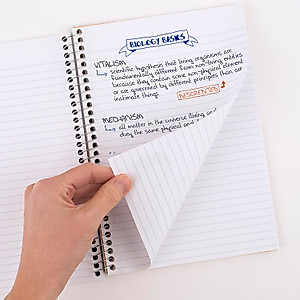 BIOLOGY BASICS
VITALISM
↳ scientific hypothesis that living organisms are
fundamentally different from non-living entities
because they contain some non-physical element
or are governed by different principles than are
inanimate things.
MECHANISM
↳ all matter in the universe (living and
obey the same physical and